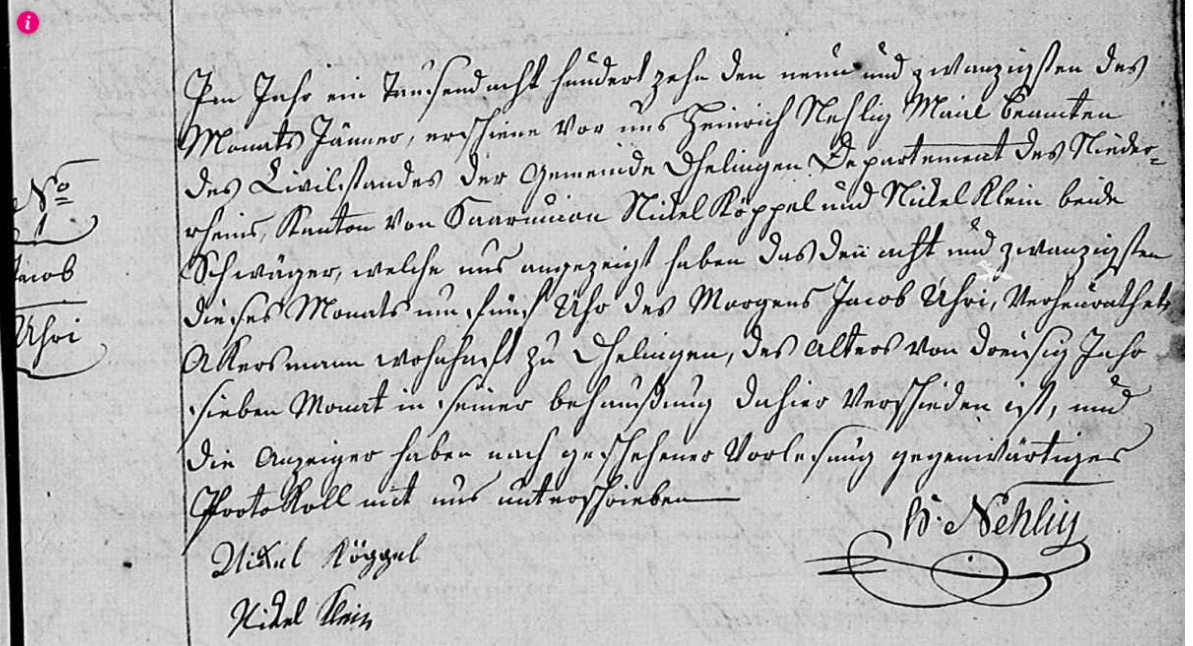 Im Jahr ein Tausend acht hundert zehn den neun und zwanzigsten des
Monats Jänner, erschiene vor uns Heinrich Nehlig Maire Beamten
des Civilstandes der Gemeinde Dhelingen Departement des Nieder-
rheins, Kanton von Saarunion Nickel Köppel und Nickel Klein beide
Schwäger, welche uns angezeigt haben das den acht und zwanzigsten
dieses Monats um fünf Uhr des Morgens Jacob Uhri, Verheurathet
Akersmann wohnhaft zu Dhelingen, des Alters von dreisig Jahr
sieben Monat in seiner behaußung dahier Verschieden ist, und
die Anzeiger haben nach geschehener Vorlesung gegenwärtiges
Protokoll mit uns unterschrieben
No
1
Jacob
Uhri
H. Nehlig
Nickel Köppel
Nickel Klein